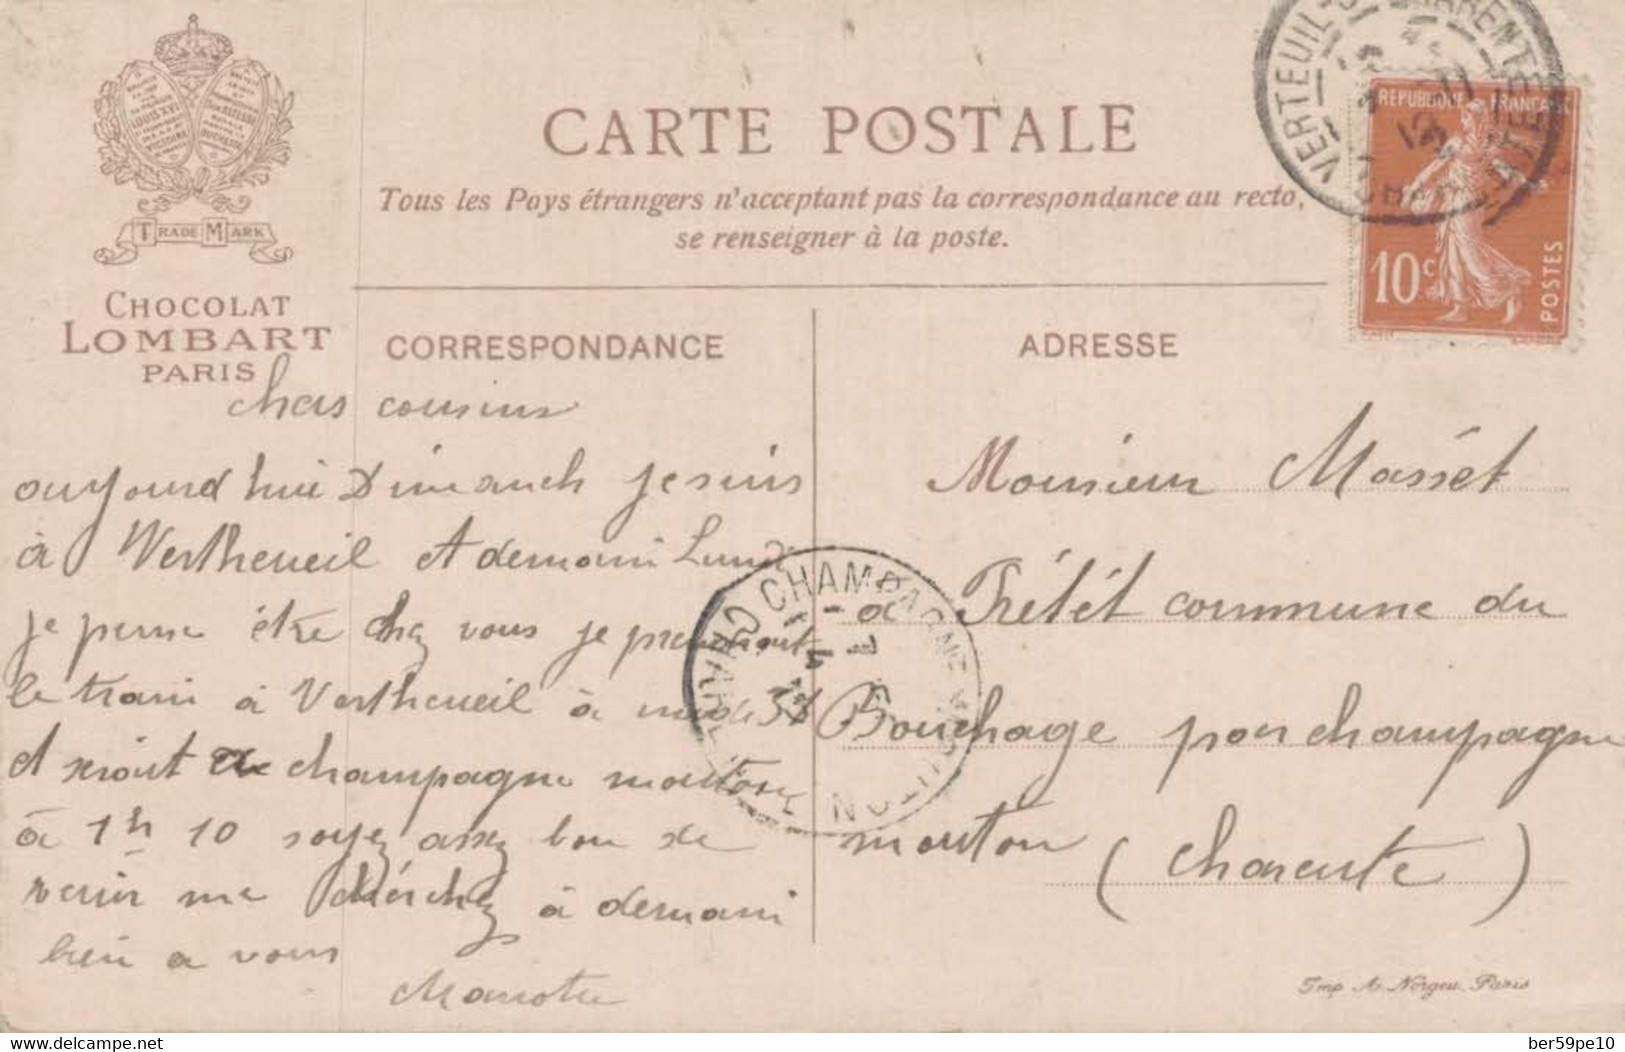 CARTE POSTALE
Tous les Pays étrangers n'acceptant pas la correspondance au recto,
se renseigner à la poste.
TRADE MARK
CHOCOLAT
LOMBART
PARIS
CORRESPONDANCE
chers cousins
aujourd hui Dimanch je suis
à Vertheueil et demain Lundi
je pense être chez vous je prendrait
le train à Vertheueil à midi
et serait a champagne moutons
à 1h 10 soyez assez bon de
venir me cherchez à demain
bien a vous
ADRESSE
Monsieur Masset
a Trétét commune du
Bouchage par champagne
mouton (charente)
REPUBLIQUE FRANÇAISE
10c
POSTES
VERTEUIL-S-CHARENTE
CHARENTE
CHAMPAGNE MOUTON
Imp A. Norgeu, Paris
delcampe.net
ber59pe10